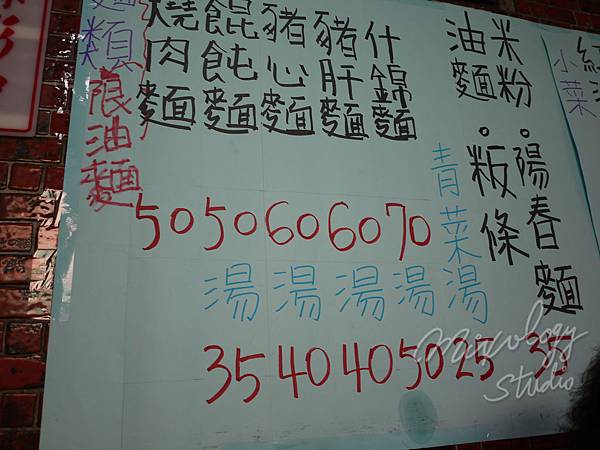 麵類
限油麵
燒肉麵
餛飩麵
豬心麵
豬肝麵
什錦麵
油麵
米粉
粄條
陽春麵
小菜
50 50 60 60 70
湯 湯 湯 湯
青菜湯
35 40 40 50 25 35
Mixology
Studio